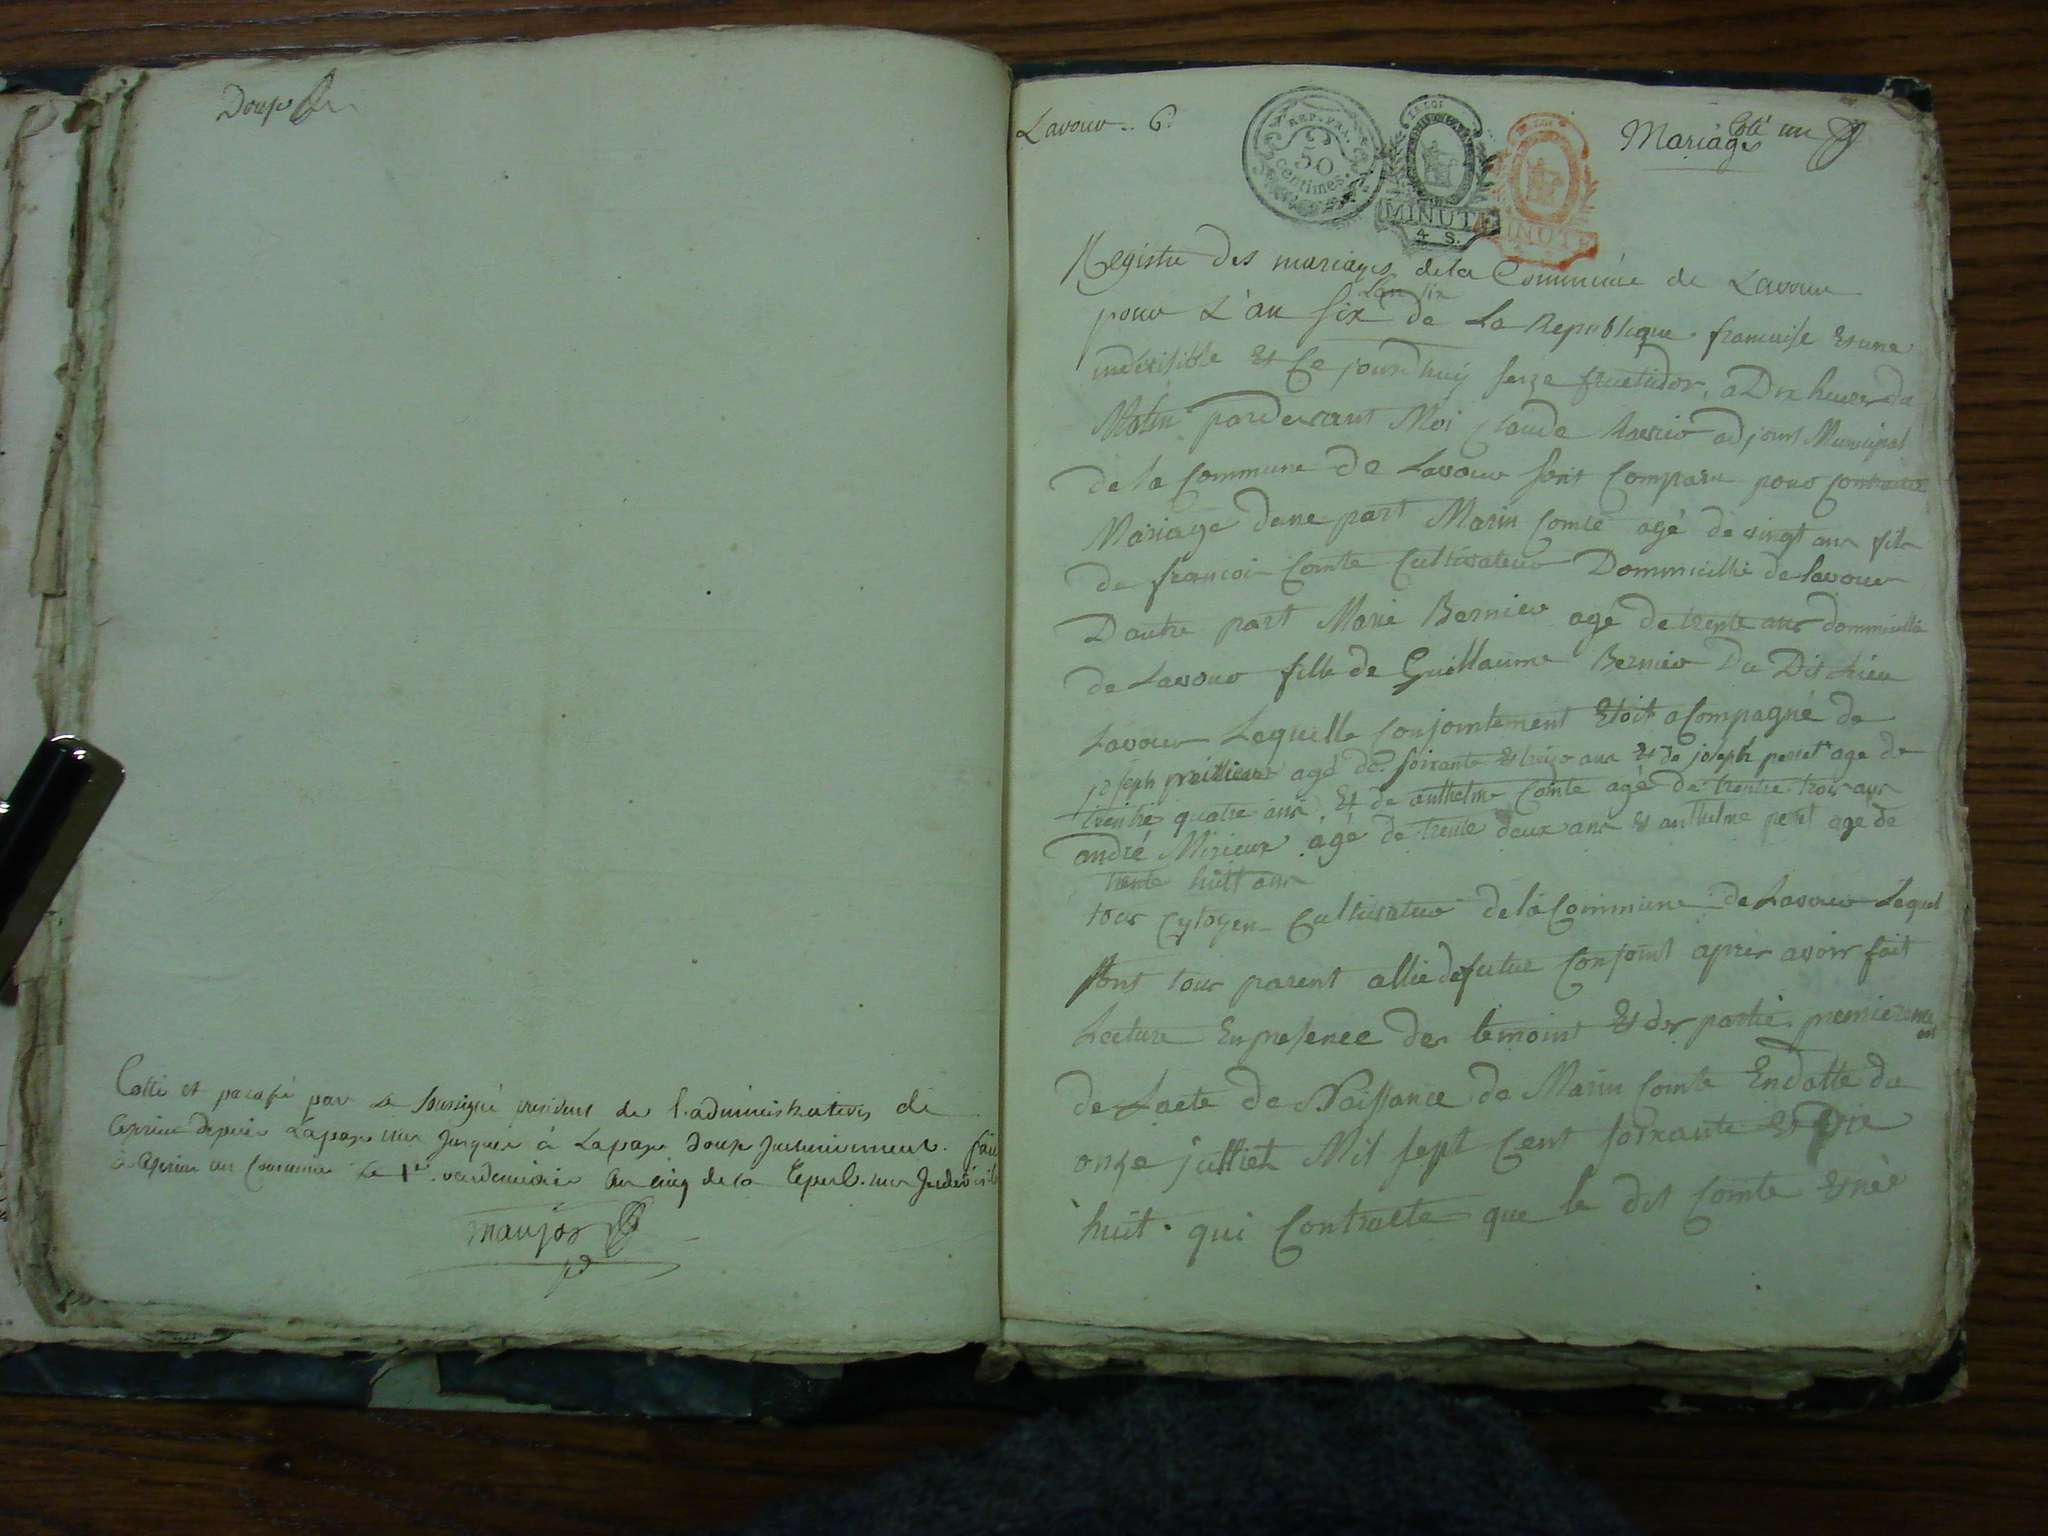 Douse
Cotté et parafé par le soussigné président de l'administration de
Ceyzerieu depuis la page une jusques à la page douze inclusivement. fait
à Ceyzerieu en commune le 1er. vendemiaire an cinq de la Repub. une Indivisib
maujos
Lavour.. 6.
REP. FRA.
50
centimes.
LA LOI
MINUTE
4 S.
LA LOI
MINUTE
Cotté un
Mariages
Registre des mariages de la Commune de Lavour
L'an six
pour L'an six de La Republique francaise et une
indivisible Et Ce jourdhuy seize fructidor, a Dix heures du
Matin pardevant Moi Claude adjoint Municipal
de la Commune De Lavour sont Comparu pour contracter
Mariage dune part Marin Comte agé de vingt ans fils
de francoi Comte Cultivateur Dommicillié de Lavour
D'autre part Marie Bernier agé De trente ans dommicillié
de Lavour fille de Guillaume Bernier Du Dit Lieu
Lavour Lequelle Conjointement Etoit acompagné de
joseph agé de soixante et ans Et de joseph perret age de
trentre quatre ans, Et de anthelme Comte agé De trentre trois ans
andré Mirieux agé De trente deux ans et anthelme petit age de
trente huitt ans
tous Cytoyen Cultivateur de la Commune de Lavour Lequel
sont tous parent allié de futur Conjoint apres avoir fait
Lecture En presence des temoint Et des partie premierement
de Lacte de Naissance de Marin Comte En datte du
onze julliet Mil sept Cent soixante et Dix
huit. qui Contracte que le dit Comte Et née